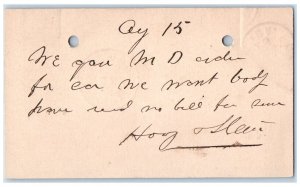 Ay 15
We gave M D order
for car we want body
have recd no bill for same
Hoag &